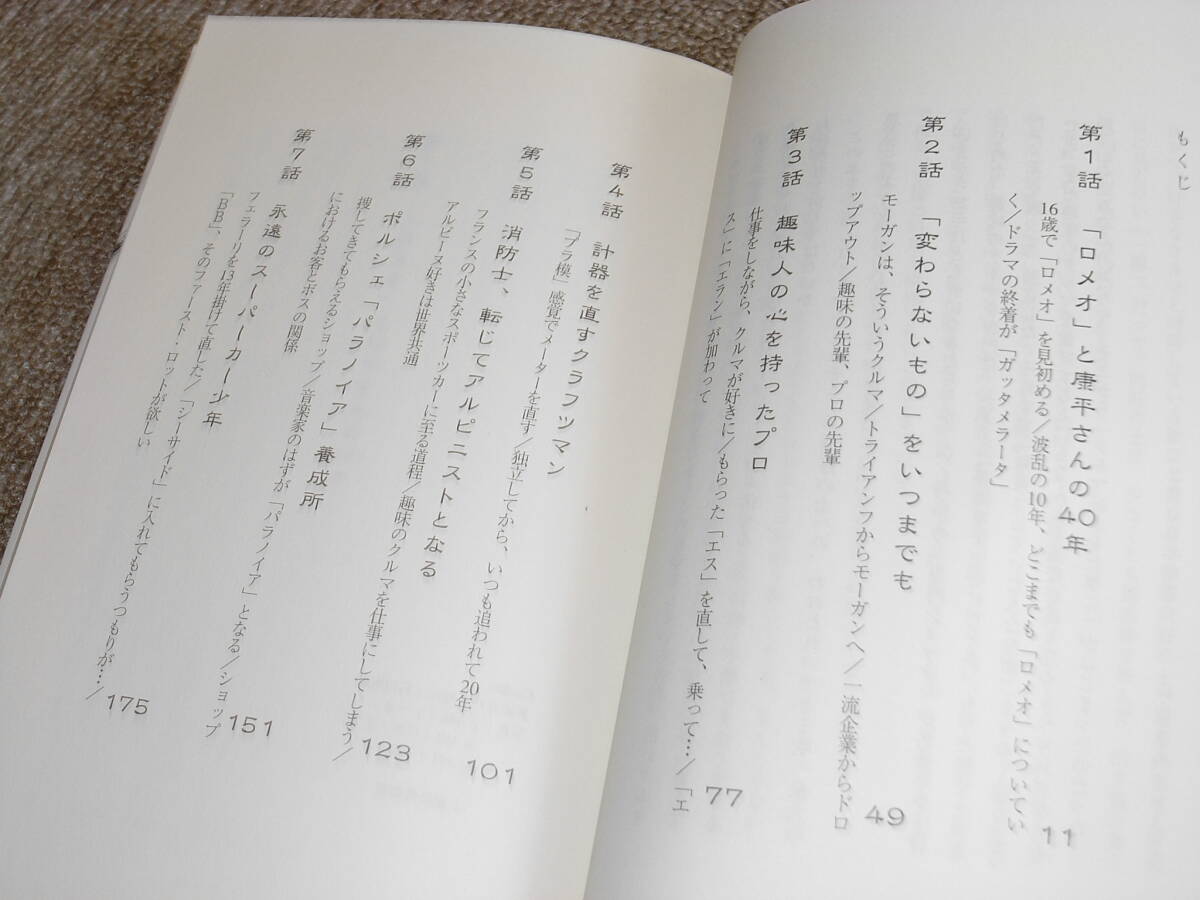 もくじ
第1話 「ロメオ」と康平さんの40年
16歳で「ロメオ」を見初める/波乱の10年、どこまでも「ロメオ」についてい
く/ドラマの終着が「ガッタメラータ」
11
第2話 「変わらないもの」をいつまでも
モーガンは、そういうクルマ/トライアンフからモーガンへ/一流企業からドロ
ップアウト/趣味の先輩、プロの先輩
49
第3話 趣味人の心を持ったプロ
仕事をしながら、クルマが好きに/もらった「エス」を直して、乗って…/「エ
ス」に「エラン」が加わって
77
第4話 計器を直すクラフツマン
「プラ模」感覚でメーターを直す/独立してから、いつも追われて20年
101
第5話 消防士、転じてアルピニストとなる
フランスの小さなスポーツカーに至る道程/趣味のクルマを仕事にしてしまう/
アルピーヌ好きは世界共通
123
第6話 ポルシェ「パラノイア」養成所
捜してきてもらえるショップ/音楽家のはずが「パラノイア」となる/ショップ
におけるお客とボスの関係
151
第7話 永遠のスーパーカー少年
フェラーリを13年掛けて直した/「シーサイド」に入れてもらうつもりが…/
「BB」、そのファースト・ロットが欲しい
175